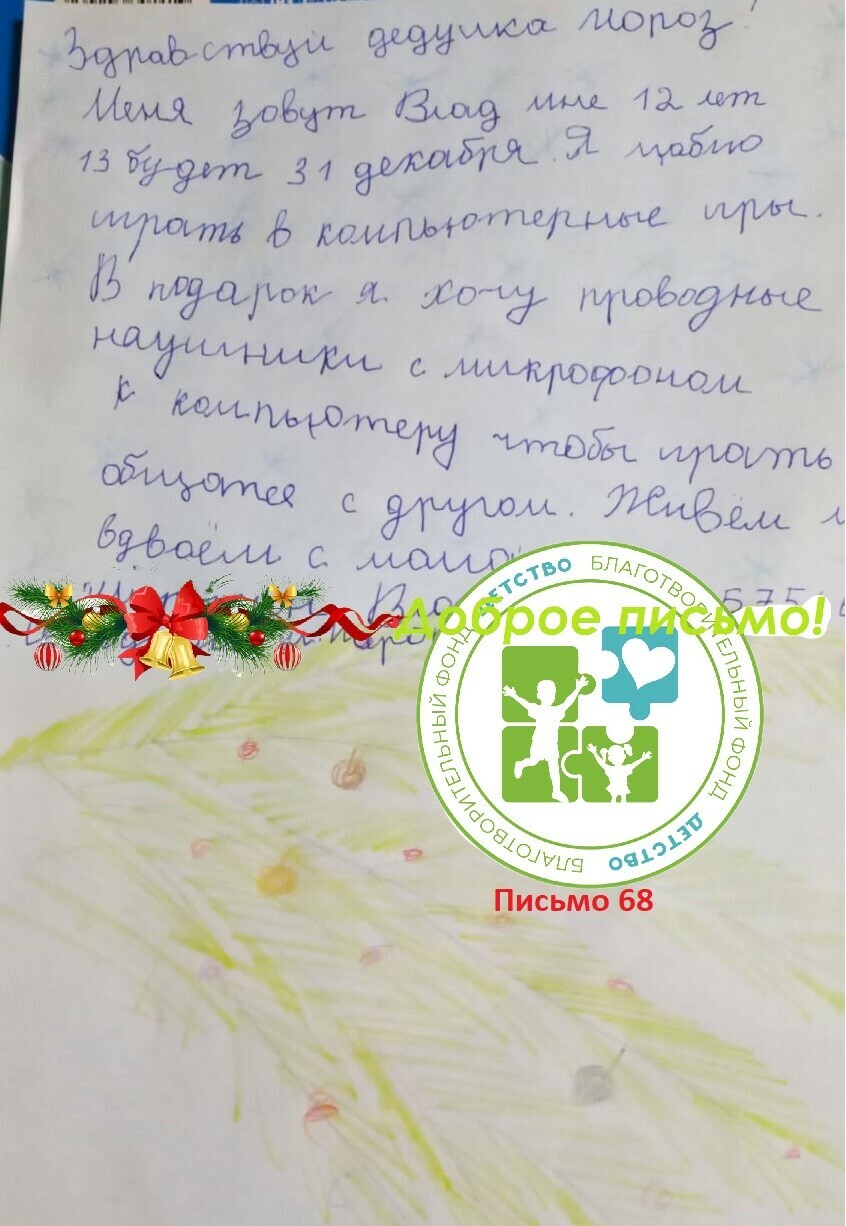 Здравствуй дедушка Мороз!
Меня зовут Влад мне 12 лет
13 будет 31 декабря. Я люблю
играть в компьютерные игры.
В подарок я хочу проводные
наушники с микрофоном
к компьютеру чтобы играть
общатся с другом. Живём
вдвоём с мамой
Доброе письмо!
БЛАГОТВОРИТЕЛЬНЫЙ ФОНД ДЕТСТВО БЛАГОТВОРИТЕЛЬНЫЙ ФОНД ДЕТСТВО
Письмо 68